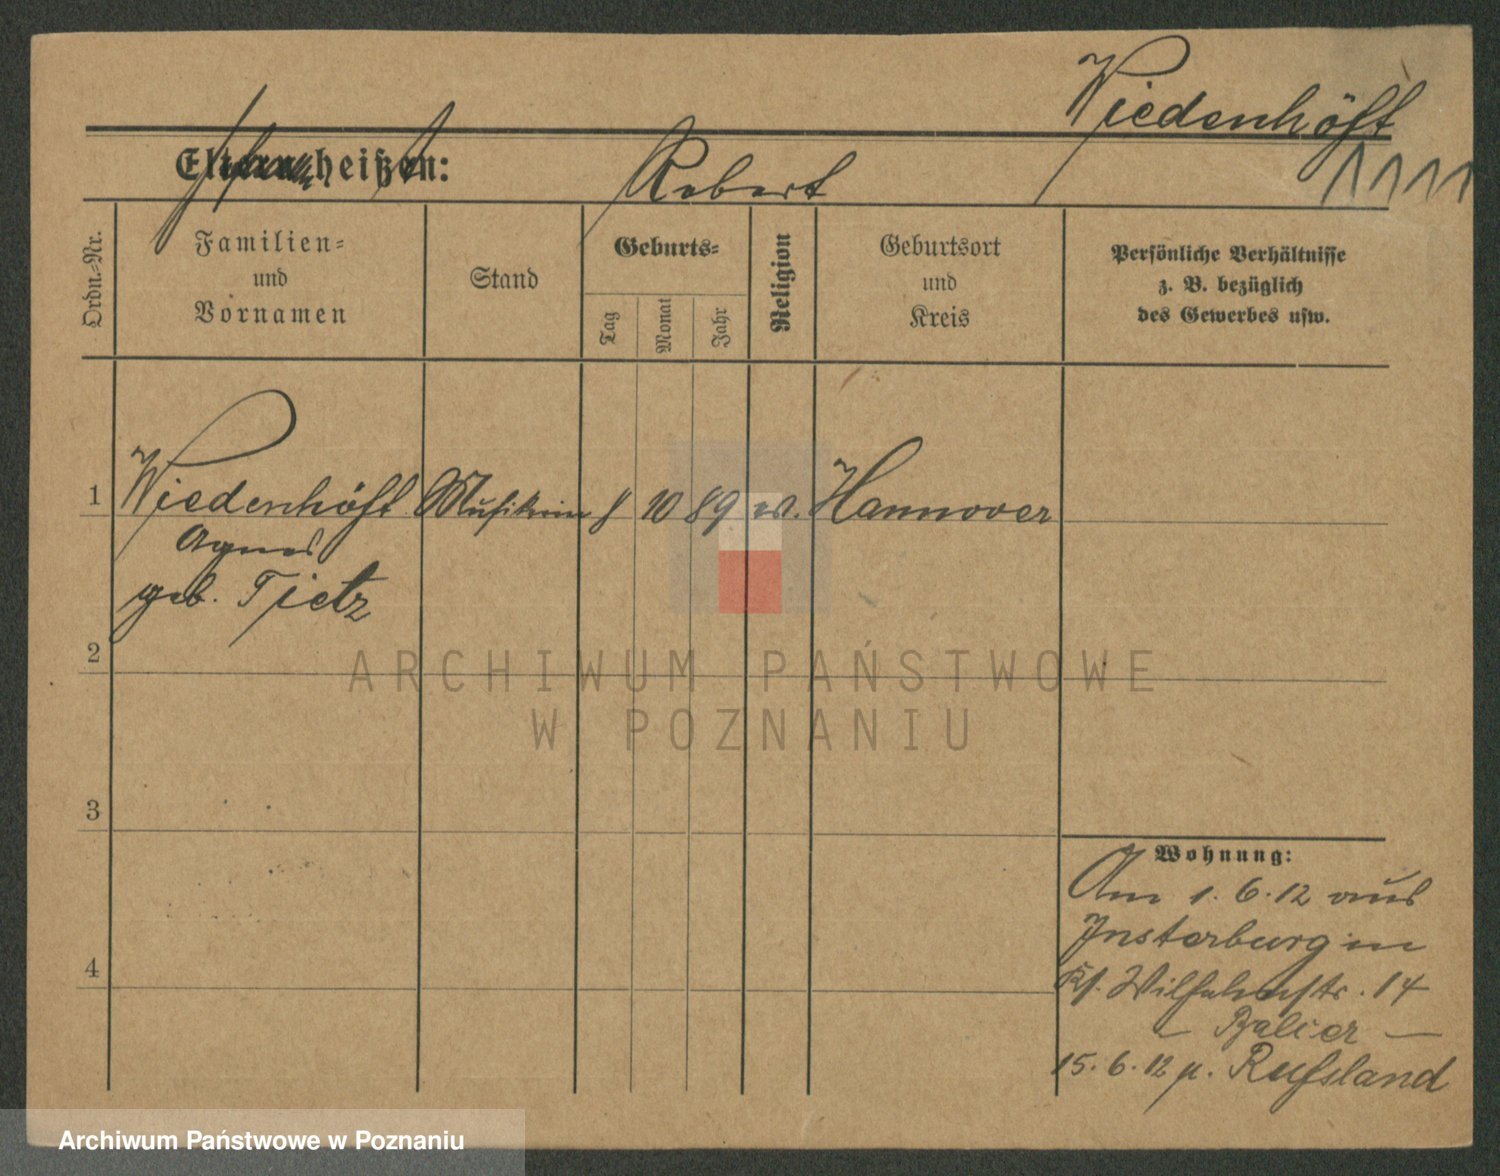 Wiedenhöft
1111
heißen:
Robert
Ordn.-Nr.
Familien-
und
Vornamen
Stand
Geburts-
Tag
Monat
Jahr
Religion
Geburtsort
und
Kreis
Persönliche Verhältnisse
z. B. bezüglich
des Gewerbes usw.
1 Wiedenhöft Musikerin 8 10 89 Hannover
Agnes
geb. Tietz
2
ARCHIWUM PAŃSTWOWE
W POZNANIU
3
4
Wohnung:
Am 1. 6. 12 aus
Insterburg in
Wilhelmstr. 14
15. 6. 12 n. Russland
Archiwum Państwowe w Poznaniu